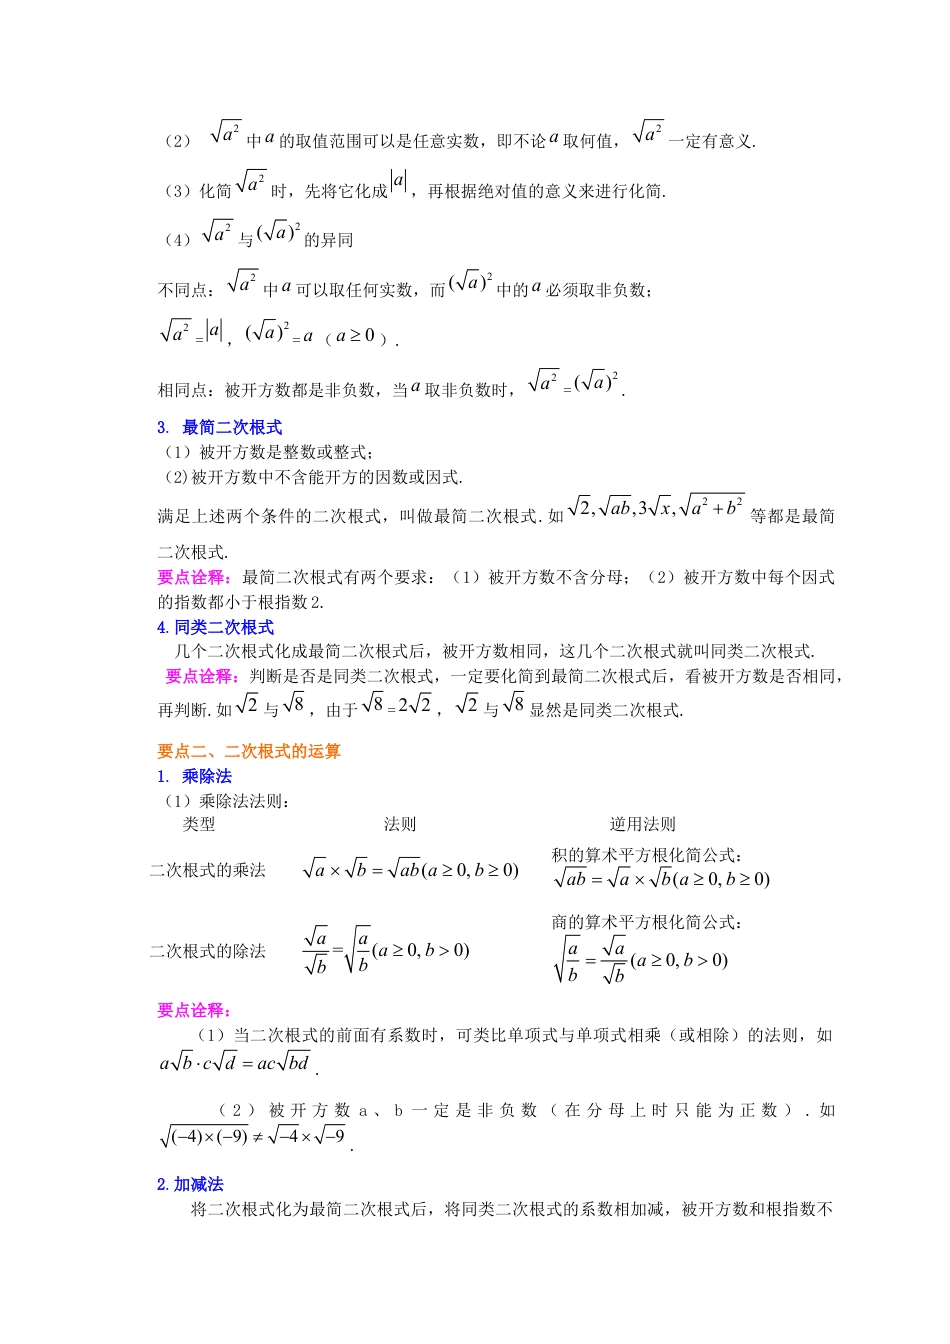 （2） √a² 中 a 的取值范围可以是任意实数，即不论 a 取何值， √a² 一定有意义.
（3）化简 √a² 时，先将它化成 |a| ，再根据绝对值的意义来进行化简.
（4） √a² 与 (√a)² 的异同
不同点： √a² 中 a 可以取任何实数，而 (√a)² 中的 a 必须取非负数；
√a² = |a| ， (√a)² = a （ a ≥ 0 ）.
相同点：被开方数都是非负数，当 a 取非负数时， √a² = (√a)² .
3. 最简二次根式
（1）被开方数是整数或整式；
（2)被开方数中不含能开方的因数或因式.
满足上述两个条件的二次根式，叫做最简二次根式.如 √2, √ab, 3√x, √(a² + b²) 等都是最简
二次根式.
要点诠释：最简二次根式有两个要求：（1）被开方数不含分母；（2）被开方数中每个因式
的指数都小于根指数 2.
4.同类二次根式
几个二次根式化成最简二次根式后，被开方数相同，这几个二次根式就叫同类二次根式.
要点诠释：判断是否是同类二次根式，一定要化简到最简二次根式后，看被开方数是否相同，
再判断.如 √2 与 √8 ，由于 √8 = 2√2 ， √2 与 √8 显然是同类二次根式.
要点二、二次根式的运算
1. 乘除法
（1）乘除法法则：
类型 法则 逆用法则
二次根式的乘法 √a × √b = √ab (a ≥ 0, b ≥ 0) 积的算术平方根化简公式：
√ab = √a × √b (a ≥ 0, b ≥ 0)
二次根式的除法 √a/√b = √(a/b) (a ≥ 0, b > 0) 商的算术平方根化简公式：
√(a/b) = √a/√b (a ≥ 0, b > 0)
要点诠释：
（1）当二次根式的前面有系数时，可类比单项式与单项式相乘（或相除）的法则，如
a√b · c√d = ac√bd .
（2）被开方数 a、b 一定是非负数（在分母上时只能为正数）.如
√((−4)×(−9)) ≠ √−4 × √−9 .
2.加减法
将二次根式化为最简二次根式后，将同类二次根式的系数相加减，被开方数和根指数不